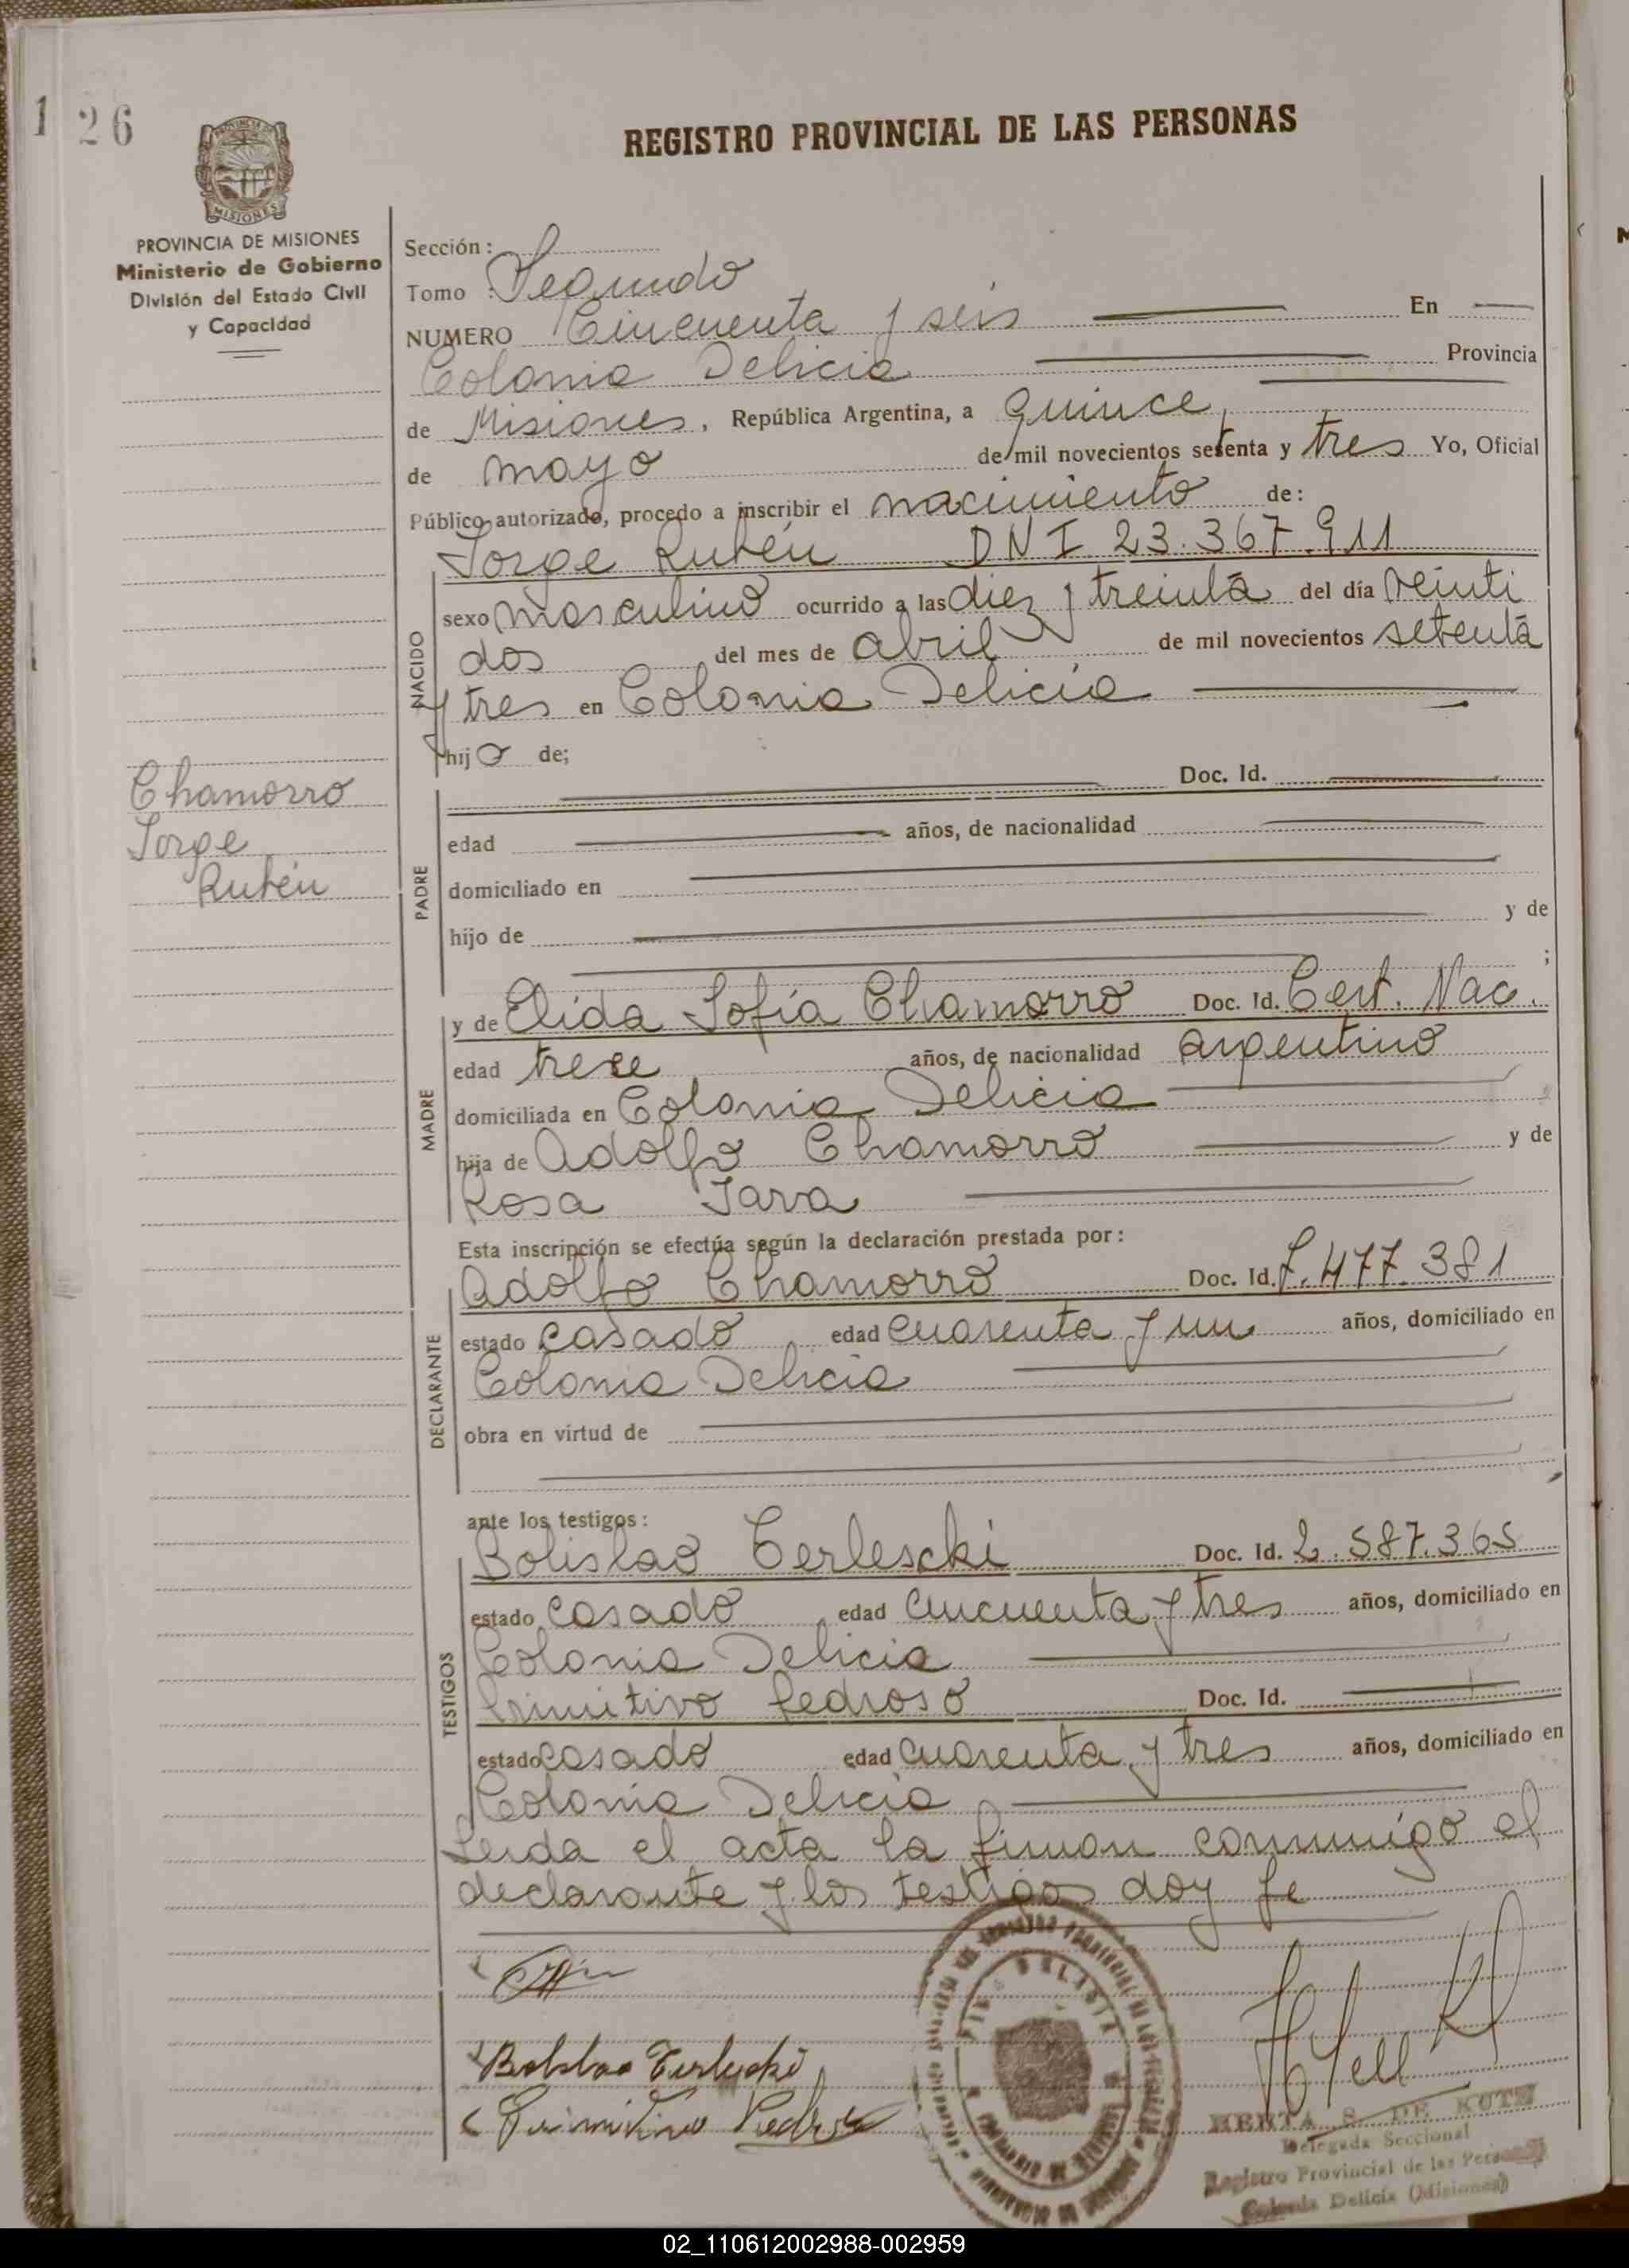 1 26
REGISTRO PROVINCIAL DE LAS PERSONAS
PROVINCIA DE MISIONES
Ministerio de Gobierno
División del Estado Civil
y Capacidad
Sección:
Tomo : Segundo
NUMERO Cincuenta y seis En
Colonia Delicia Provincia
de Misiones, República Argentina, a quince
de mayo de mil novecientos setenta y tres Yo, Oficial
Público autorizado, procedo a inscribir el nacimiento de:
Jorge Rubén DNI 23.367.911
NACIDO
sexo masculino ocurrido a las diez y treinta del día veinti
dos del mes de abril de mil novecientos setenta
y tres en Colonia Delicia
hijo de;
Chamorro
Jorge
Rubén
PADRE
Doc. Id.
edad años, de nacionalidad
domiciliado en
hijo de y de
;
MADRE
y de Elida Sofía Chamorro Doc. Id. Cert. Nac.
edad trece años, de nacionalidad argentino
domiciliada en Colonia Delicia
hija de Adolfo Chamorro y de
Rosa Jara
Esta inscripción se efectúa según la declaración prestada por:
DECLARANTE
Adolfo Chamorro Doc. Id. 7.477.381
estado casado edad cuarenta y un años, domiciliado en
Colonia Delicia
obra en virtud de
ante los testigos:
TESTIGOS
Bolislao Terlescki Doc. Id. 2.587.365
estado casado edad cincuenta y tres años, domiciliado en
Colonia Delicia
Primitivo Pedroso Doc. Id.
estado casado edad cuarenta y tres años, domiciliado en
Colonia Delicia
Leida el acta la firman conmigo el
declarante y los testigos doy fe
Primitivo Pedroso
HERTA S. DE KOTH
Delegada Seccional
Registro Provincial de las Personas
Colonia Delicia (Misiones)
02_110612002988-002959